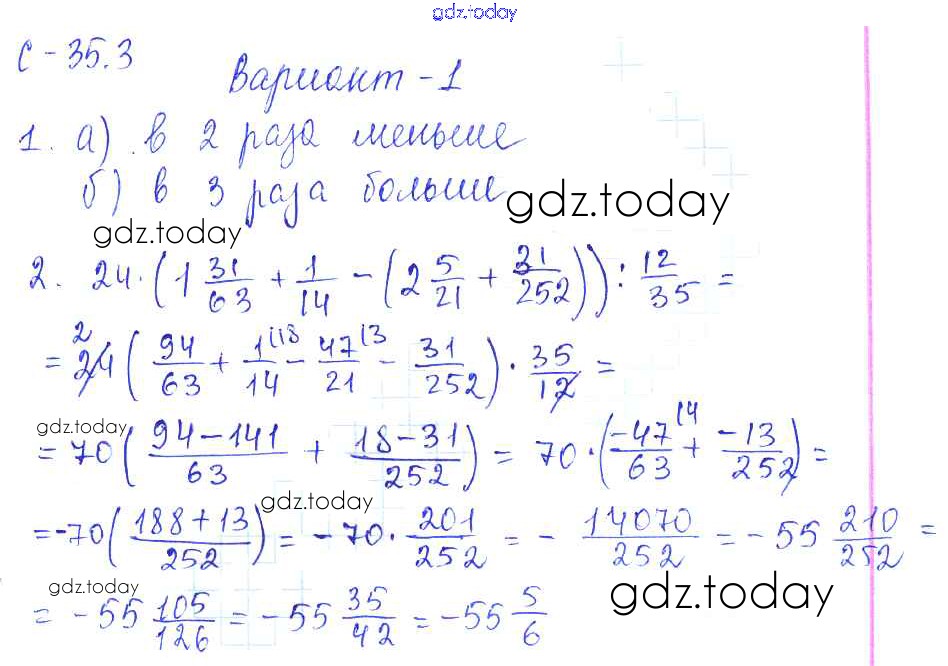 gdz.today
С-35.3
Вариант-1
1. а) в 2 раза меньше
б) в 3 раза больше
gdz.today
gdz.today
2. 24·(1 31/63 + 1/14 − (2 5/21 + 31/252)) : 12/35 =
= 24 2 (94/63 + 1/14 (18 − 47/21 (3 − 31/252) · 35/12 =
gdz.today
= 70 ((94−141)/63 + (18−31)/252) = 70·(−47/63 (4 + −13/252) =
gdz.today
= −70 ((188+13)/252) = −70· 201/252 = − 14070/252 = −55 210/252 =
gdz.today
gdz.today
= −55 105/126 = −55 35/42 = −55 5/6